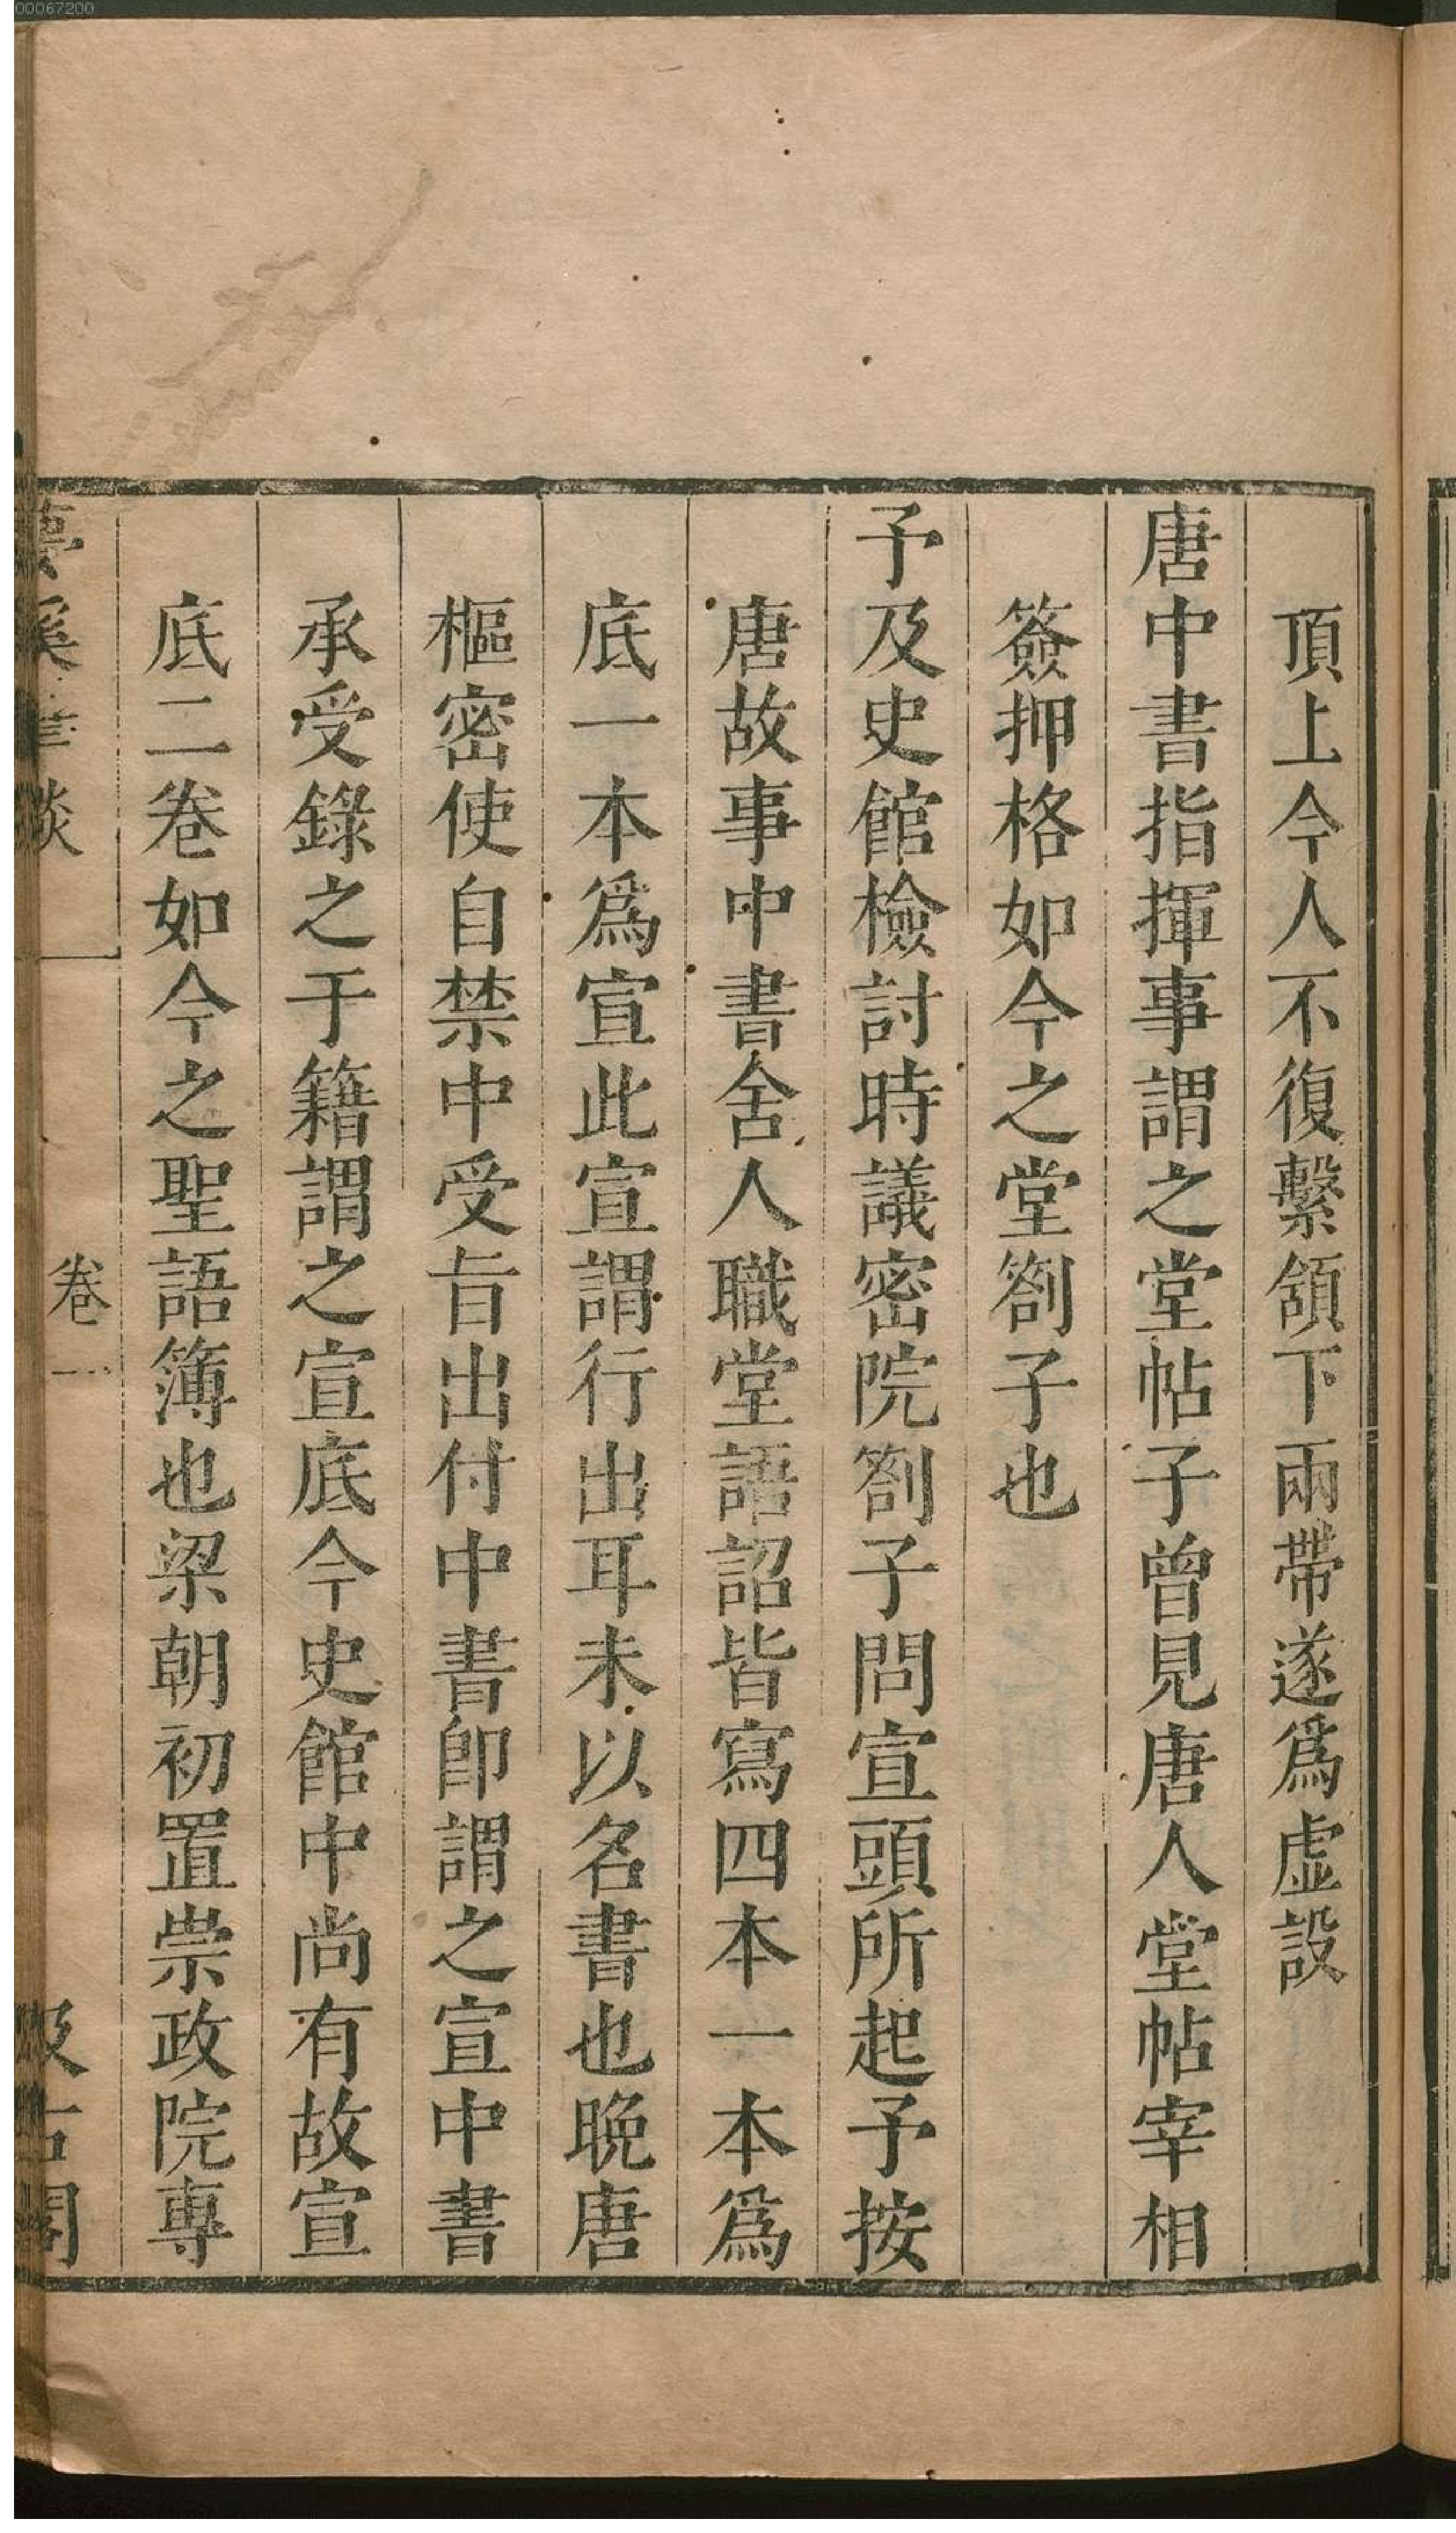 00067200
頂上今人不復繫頷下兩帶遂爲虛設
唐中書指揮事謂之堂帖子曾見唐人堂帖宰相
簽押格如今之堂劄子也
予及史館檢討時議密院劄子問宣頭所起予按
唐故事中書舍人職堂語詔皆寫四本一本爲
底一本爲宣此宣謂行出耳未以名書也晚唐
樞密使自禁中受旨出付中書卽謂之宣中書
承受錄之于籍謂之宣底今史館中尚有故宣
底二卷如今之聖語簿也梁朝初置崇政院專
夢溪筆談 卷一 汲古閣